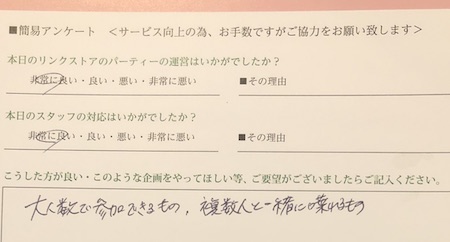 ■簡易アンケート ＜サービス向上の為、お手数ですがご協力をお願い致します＞
本日のリンクストアのパーティーの運営はいかがでしたか？
非常に良い・良い・悪い・非常に悪い ■その理由
本日のスタッフの対応はいかがでしたか？
非常に良い・良い・悪い・非常に悪い ■その理由
こうした方が良い・このような企画をやってほしい等、ご要望がございましたらご記入ください。
大人数で参加できるもの，複数人と一緒に喋れるもの